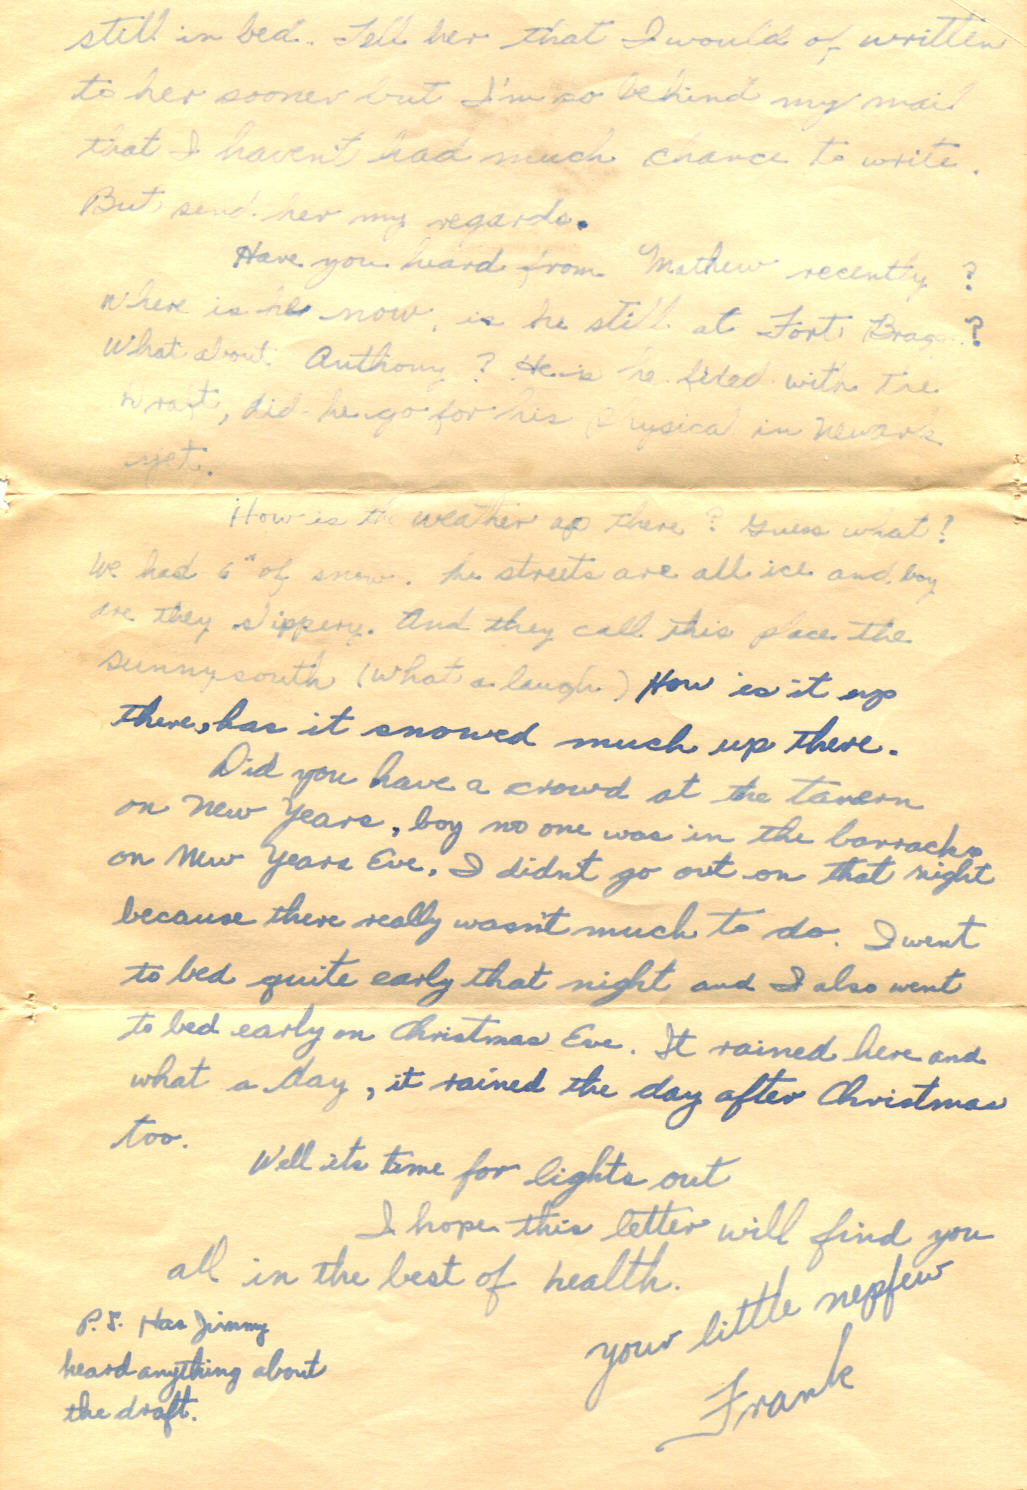 still in bed. Tell her that I would of written
to her sooner but I'm so behind my mail
that I haven't had much chance to write.
But send her my regards.
Have you heard from Mathew recently?
Where is he now, is he still at Fort Bragg?
What about Anthony? He is with the
Draft, did he go for his physical in Newark
yet.
How is the weather up there? Guess what!
We had 6" of snow. The streets are all ice and boy
are they slippery. And they call this place the
sunny south (what a laugh) How is it up
there, has it snowed much up there.
Did you have a crowd at the tavern
on New Years, boy no one was in the barracks
on New Years Eve. I didn't go out on that night
because there really wasn't much to do. I went
to bed quite early that night and I also went
to bed early on Christmas Eve. It rained here and
what a day, it rained the day after Christmas
too.
Well its time for lights out
I hope this letter will find you
all in the best of health.
your little nepfew
Frank
P.S. Has Jimmy
heard anything about
the draft.